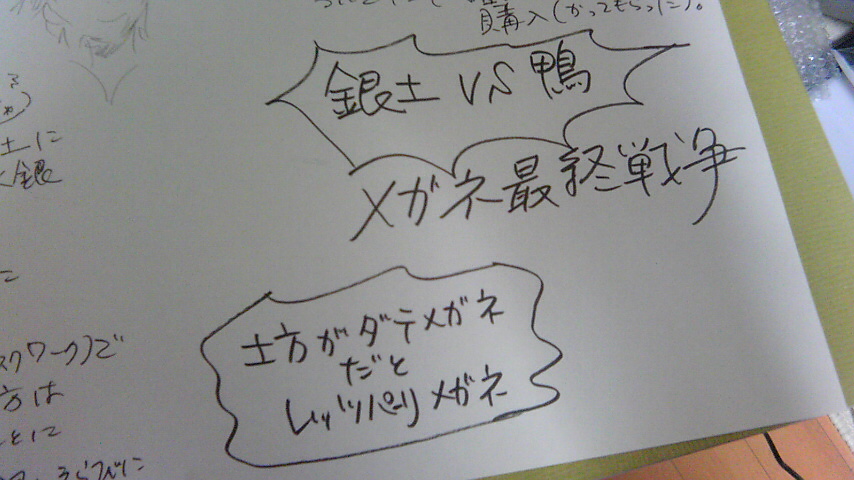 購入(かってもらった)。
銀土 VS 鴨
メガネ最終戦争
土に
銀
スクワーク)で
方は
とに
土方がダテメガネ
だと
レッツパーリィメガネ